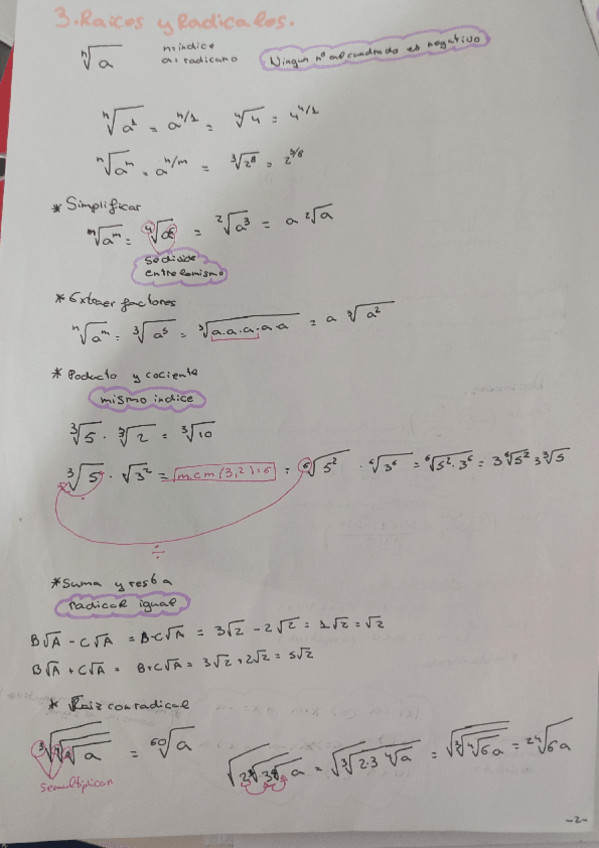 3. Raices y Radicales.
ⁿ√a n: indice Ningun nº al cuadrado es negativo
a: radicano
ⁿ√a¹ = a^n/1 = ⁴√4 = 4^4/1
ⁿ√aᵐ = a^n/m = ³√2⁸ = 2^3/8
* Simplificar
ⁿ√aᵐ = = ²√a³ = a ²√a
se divide
entre lo mismo
* Extraer factores
ⁿ√aᵐ = ³√a⁵ = ³√a.a.a.a.a = a ³√a²
* Poducto y cociente
mismo indice
³√5 · ³√2 = ³√10
³√5 · √3² = mcm(3,2)=6 = ⁶√5² · ⁶√3⁶ = ⁶√5²·3⁶ = 3⁶√5² 3³√5
÷
* Suma y resta
radical igual
B√A - C√A = B-C√A = 3√2 - 2√2 = 1√2 = √2
B√A + C√A = B+C√A = 3√2 + 2√2 = 5√2
* Raiz con radical
= ⁶⁰√a = √³√2·3 ⁴√a = √³√⁴√6a = ²⁴√6a
se multiplican
-2-